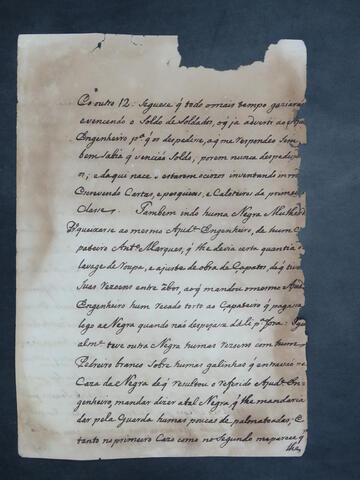 Co outro 12: Seguese q̃ todo o mais tempo gaziarão
evencendo o Soldo de Soldados, o q̃ ja adverti ao Ajud.
Engenheiro p.ª q̃ os despedisse, a q̃ me respondeo Sem
bem Sabia q̃ venciaõ Soldo, porem nunca despedio
os; e daqui nace o estarem ociozos inventando in
Escrevendo Cartas, e pasquins, e Caloteiros da primeira
Classe. Tambem indo huma Negra Mulher
Queixarse ao mesmo Ajud.e Engenheiro, de hum Ça
pateiro Ant.o Marques, q̃ lhe devia certa quantia de
lavage de Roupa, e ajustes de obra de Çapatos, de q̃ ti
Suas Rezoens entre Ambos, ao q̃ mandou o mesmo Ajud.
Engenheiro hum recado torto ao Çapateiro q̃ pagasse
logo a Negra quando naõ despejasse dali p.ª fora: Igu
alm.te teve outra Negra humas rezoens com hum
Pedreiro branco Sobre humas galinhas q̃ entravaõ na
Caza da Negra de q̃ rezultou o referido Ajud.e En
genheiro, mandar dizer a tal Negra, q̃ lhe mandaria
dar pela Guarda humas poucas de palmatoadas; E
tanto no primeiro Cazo como no Segundo me parece q̃
lhe